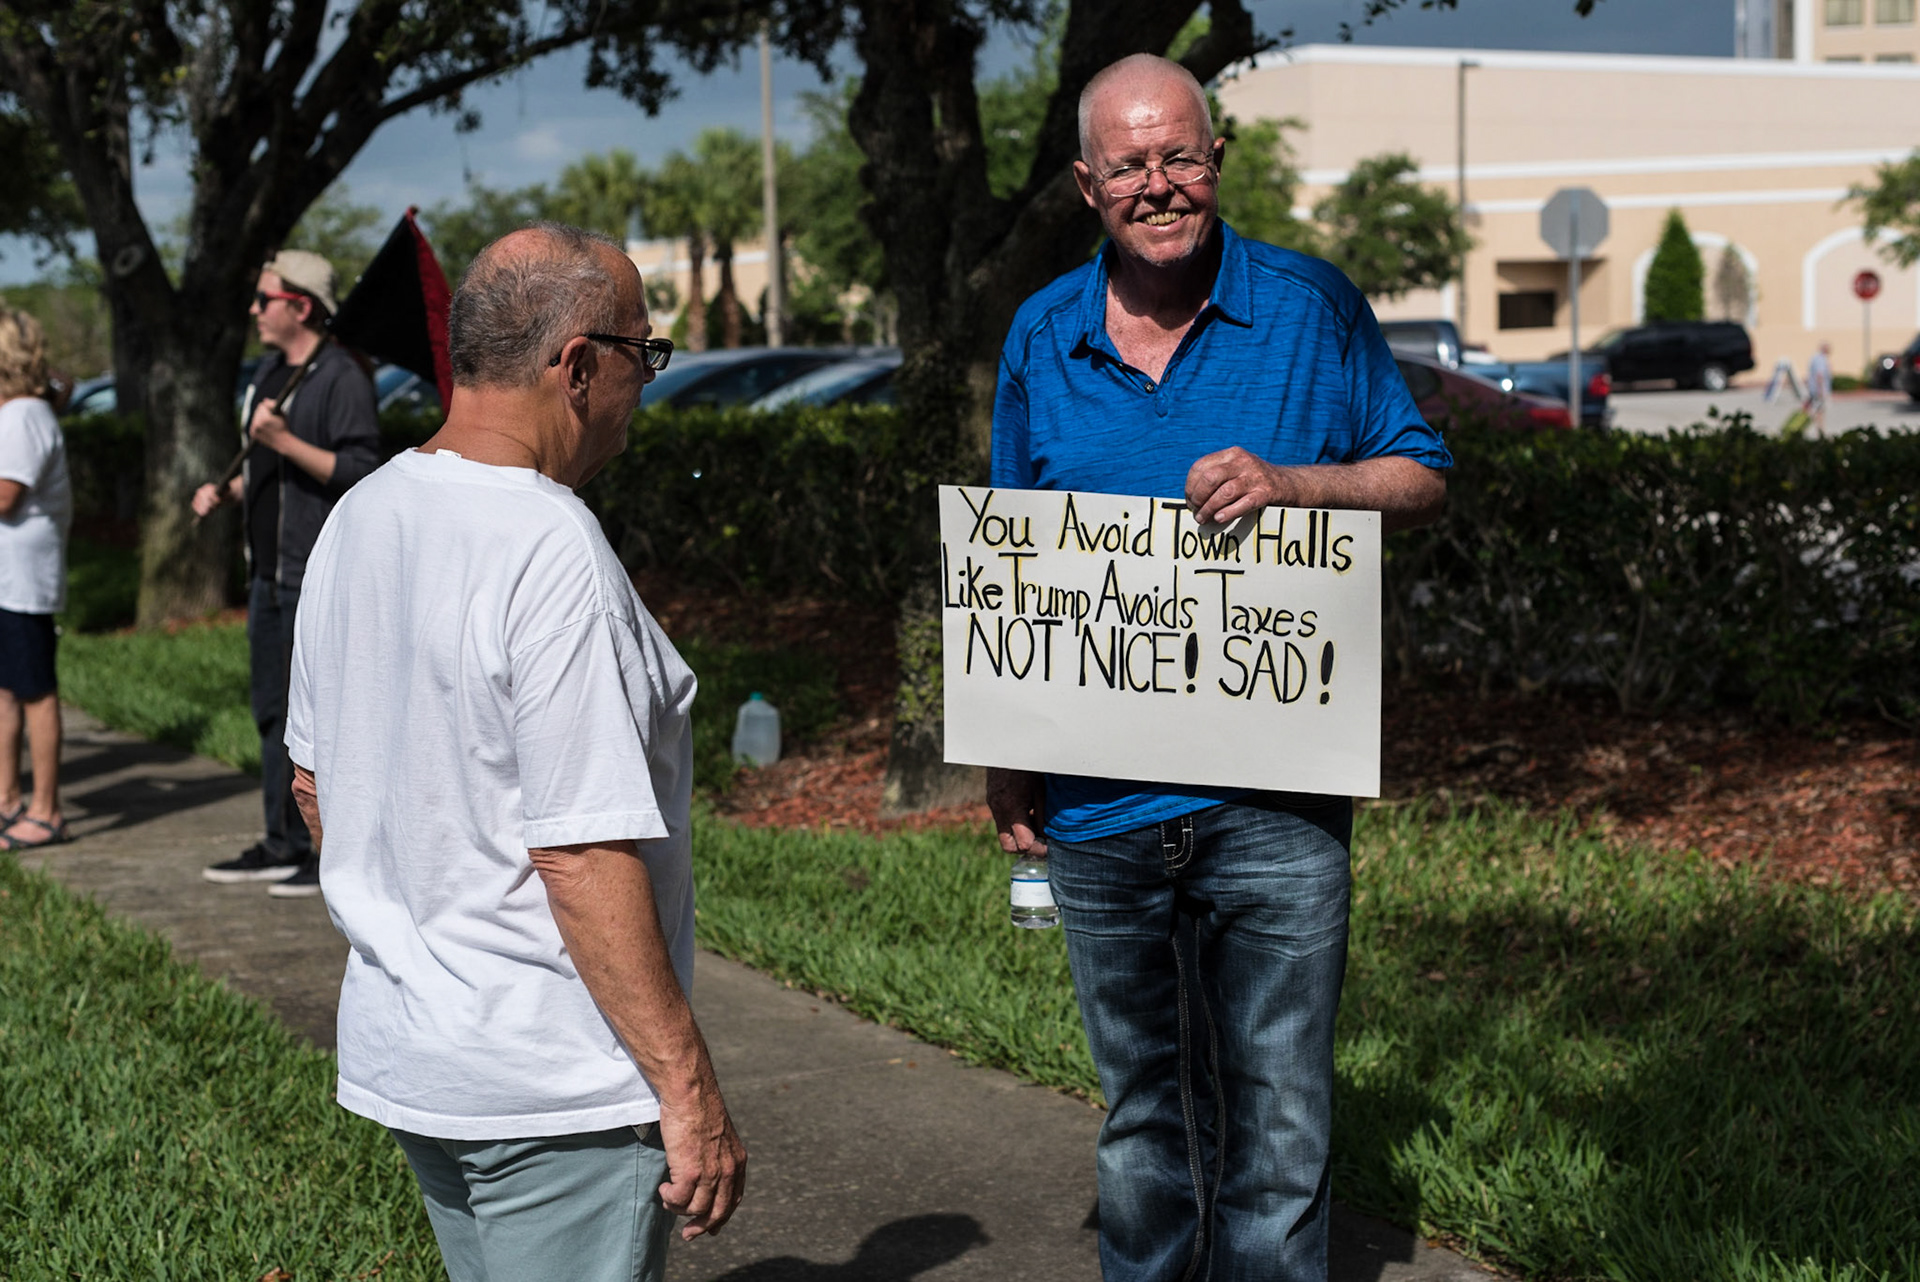 You Avoid Town Halls
Like Trump Avoids Taxes
NOT NICE! SAD!